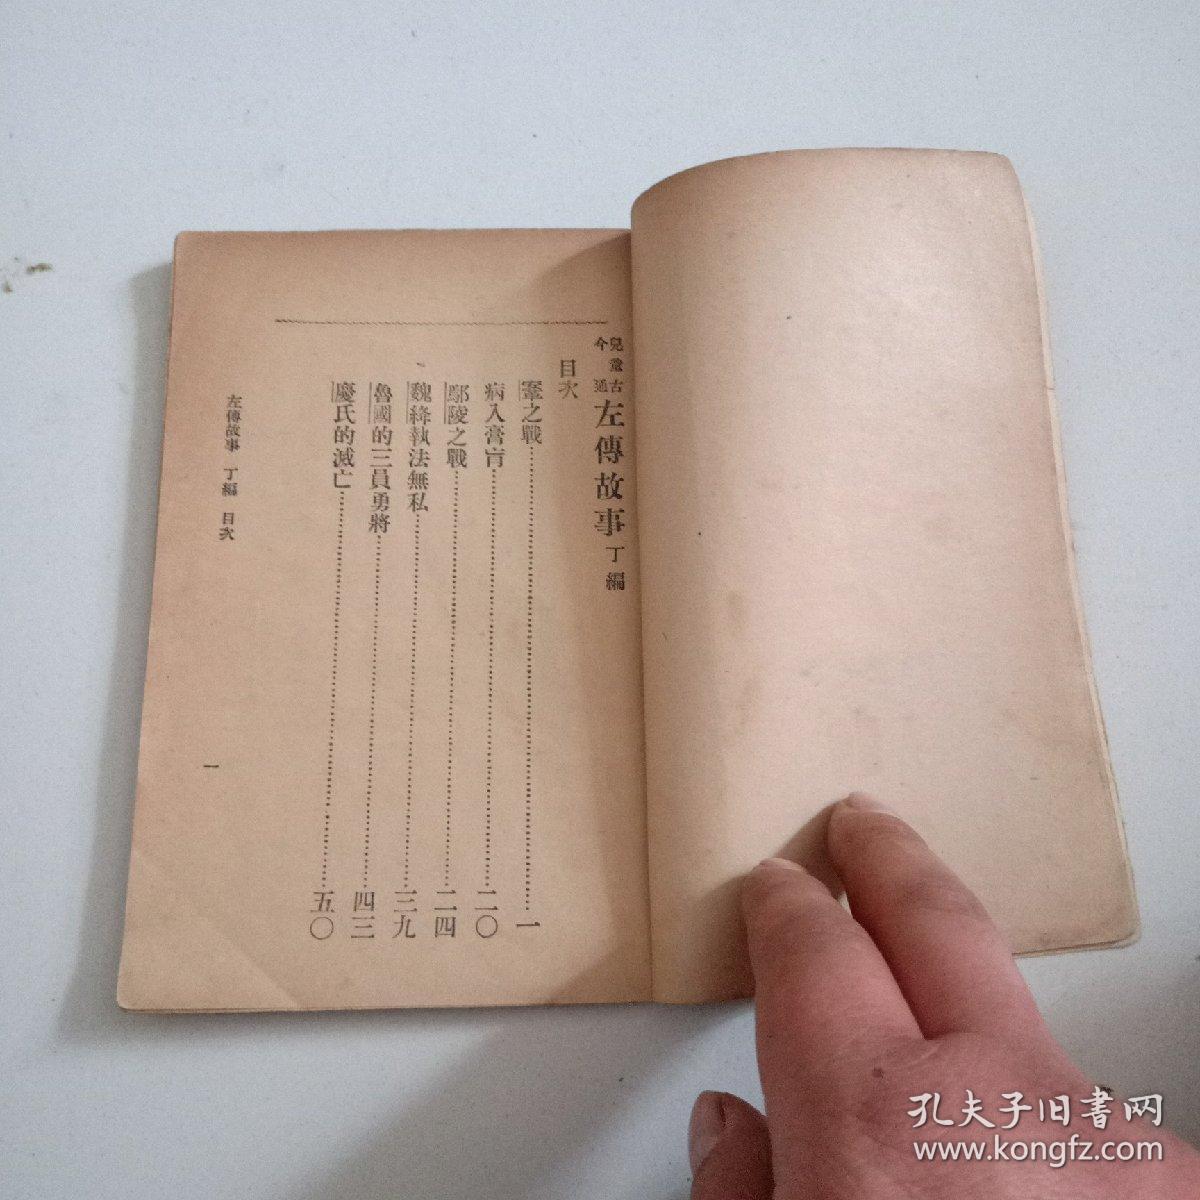 兒童古今通 左傳故事 丁編
目次
鞌之戰……一
病入膏肓……二〇
鄢陵之戰……二四
魏絳執法無私……三九
魯國的三員勇將……四三
慶氏的滅亡……五〇
左傳故事 丁編 目次
一
孔夫子旧書网
www.kongfz.com